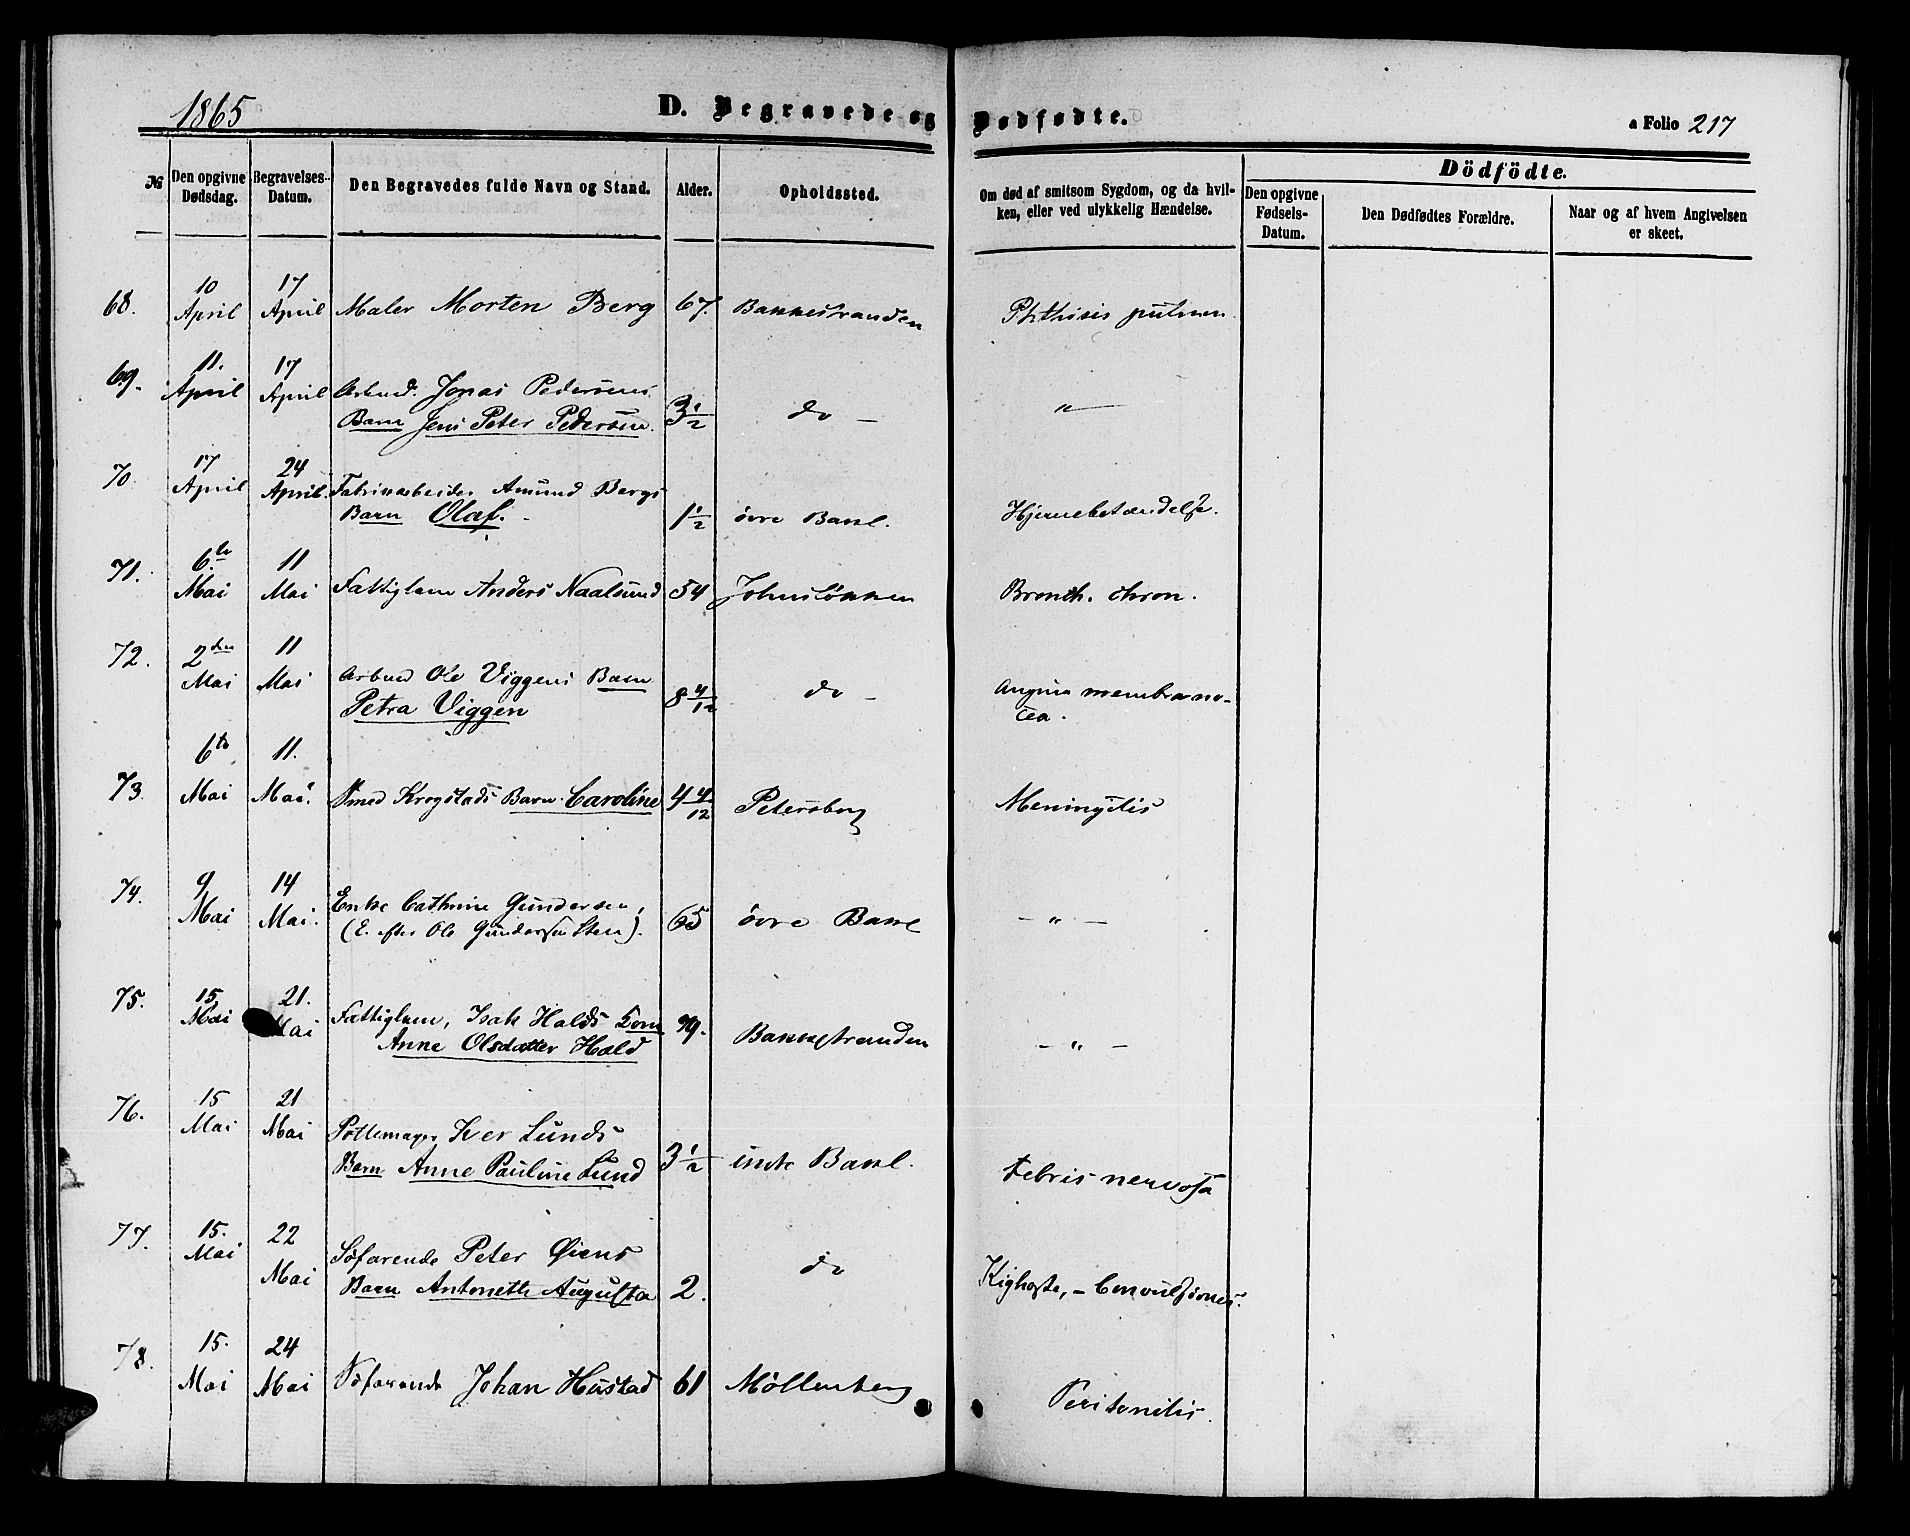 1865
D. Begravede og Dødfødte.
a Folio 217
№
Den opgivne Dødsdag.
Begravelses-Datum.
Den Begravedes fulde Navn og Stand.
Alder.
Opholdssted.
Om død af smitsom Sygdom, og da hvilken, eller ved ulykkelig Hændelse.
Dödfödte.
Den opgivne Fødsels-Datum.
Den Dødfødtes Forældre.
Naar og af hvem Angivelsen er skeet.
68. 10 April 17 April Maler Morten Berg 67. Bakkestranden Phthisis pulmon
69. 11. April 17 April Arbmd. Jonas Pedersens
Barn Jens Peter Pedersen. 3 1/2 do — " —
70. 17 April 24 April. Fabrikarbeider Amund Bergs
Barn Olaf. 1 1/2 övre Bakl. Hjernebetændelse.
71. 6te Mai 11 Mai Fattiglem Anders Naalsund 54 Johnsløkken Bronch. chron.
72. 2den Mai 11 Mai Arbmd Ole Viggens Barn
Petra Viggen 8 4/12 do — Angina membrana-
cea.
73. 6te Mai 11. Mai. Smed Krogstads Barn Caroline 4 4/12 Petersborg Meningitis
74. 9 Mai 14 Mai. Enke Cathrine Gundersen,
(E. efter Ole Gundersen Sten). 65 övre Bakl — " —
75. 15 Mai 21. Mai Fattiglem, Isak Halds Kone
Anne Olsdatter Hald 79. Bakkestranden — " —
76. 15 Mai 21 Mai Pottemager Iver Lunds
Barn Anne Pauline Lund 3 1/2 indr Bakl. Febris nervosa
77. 15. Mai 22 Mai Söfarende Peter Øiens
Barn Antonette Augusta 2. do Kighoste, – Convulsiones.
78. 15. Mai 24 Mai Söfarende Johan Hustad 61 Möllenberg Peritonitis.